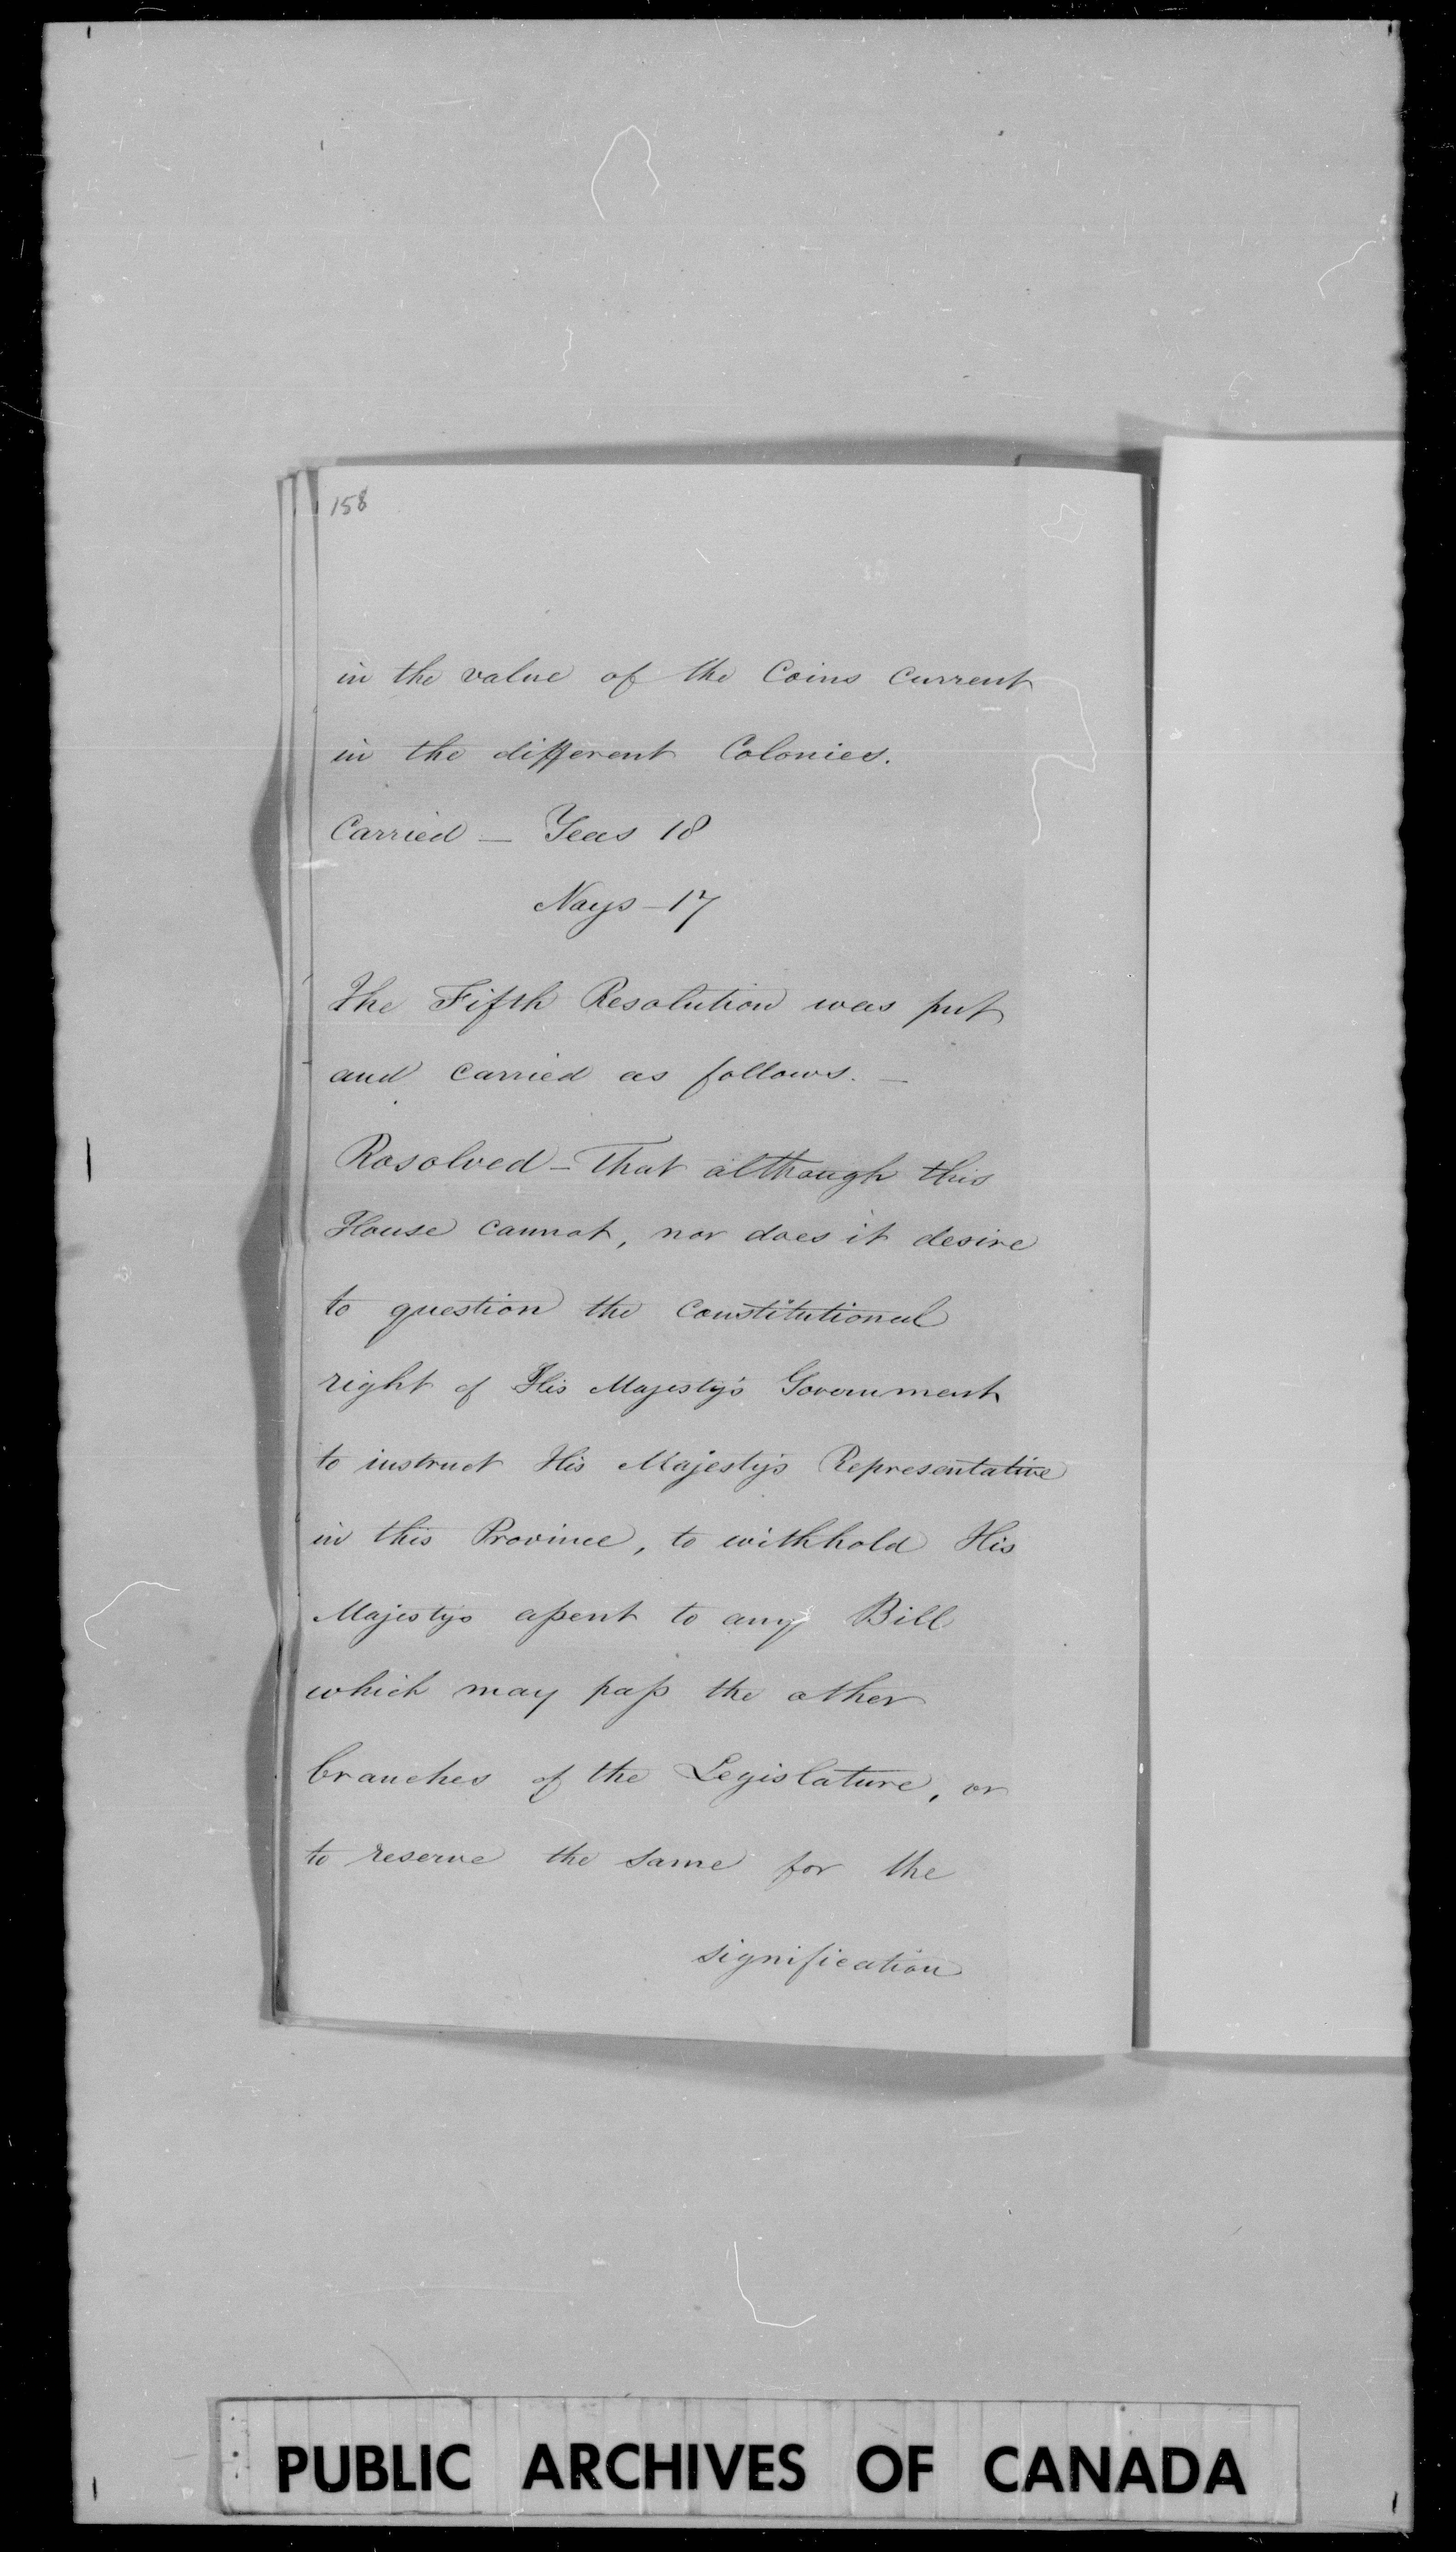 158
in the value of the Coins Current
in the different Colonies.
Carried — Yeas 18
Nays — 17
The Fifth Resolution was put
and carried as follows. —
Rosolved — That although this
House cannot, nor does it desire
to question the Constitutional
right of His Majesty's Government
to instruct His Majesty's Representative
in this Province, to withhold His
Majestys aſsent to any Bill
which may paſs the other
branches of the Legislature, or
to reserve the same for the
signification
PUBLIC ARCHIVES OF CANADA